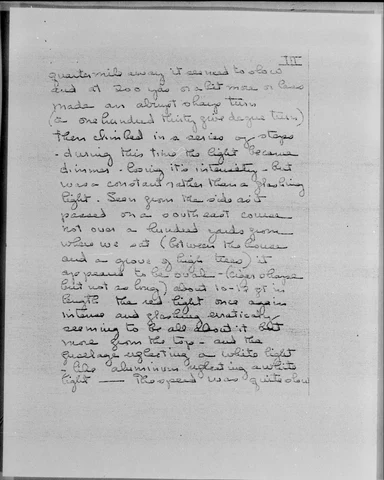 III
quarter mile away it seemed to slow
and at 200 yds or a bit more or less
made an abrupt sharp turn
(a one hundred thirty five degree turn)
then climbed in a series of steps
- during this time the light became
dimmer - losing it's intensity - but
was a constant rather than a flashing
light. Seen from the side as it
passed on a south east course
not over a hundred yards from
where we sat (between the house
and a grove of high trees) it
appeared to be oval - (cigar shape
but not as long) about 10-12 ft in
length the red light once again
intense and flashing erratically
seeming to be all about it but
more from the top - and the
fuselage reflecting a white light
- like aluminum reflecting a white
light — The speed was quite slow